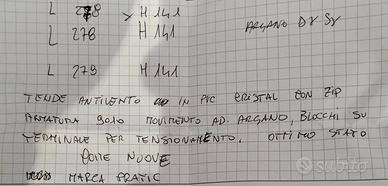 L 278 x H 141
L 278 H 141
ARGANO DX SX
L 279 H 141
TENDE ANTIVENTO IN PVC CRISTAL CON ZIP
ARMATURA 9010 MOVIMENTO AD ARGANO, BLOCCHI SU
TERMINALE PER TENSIONAMENTO. OTTIMO STATO
COME NUOVE
MARCA PRATIC
subito